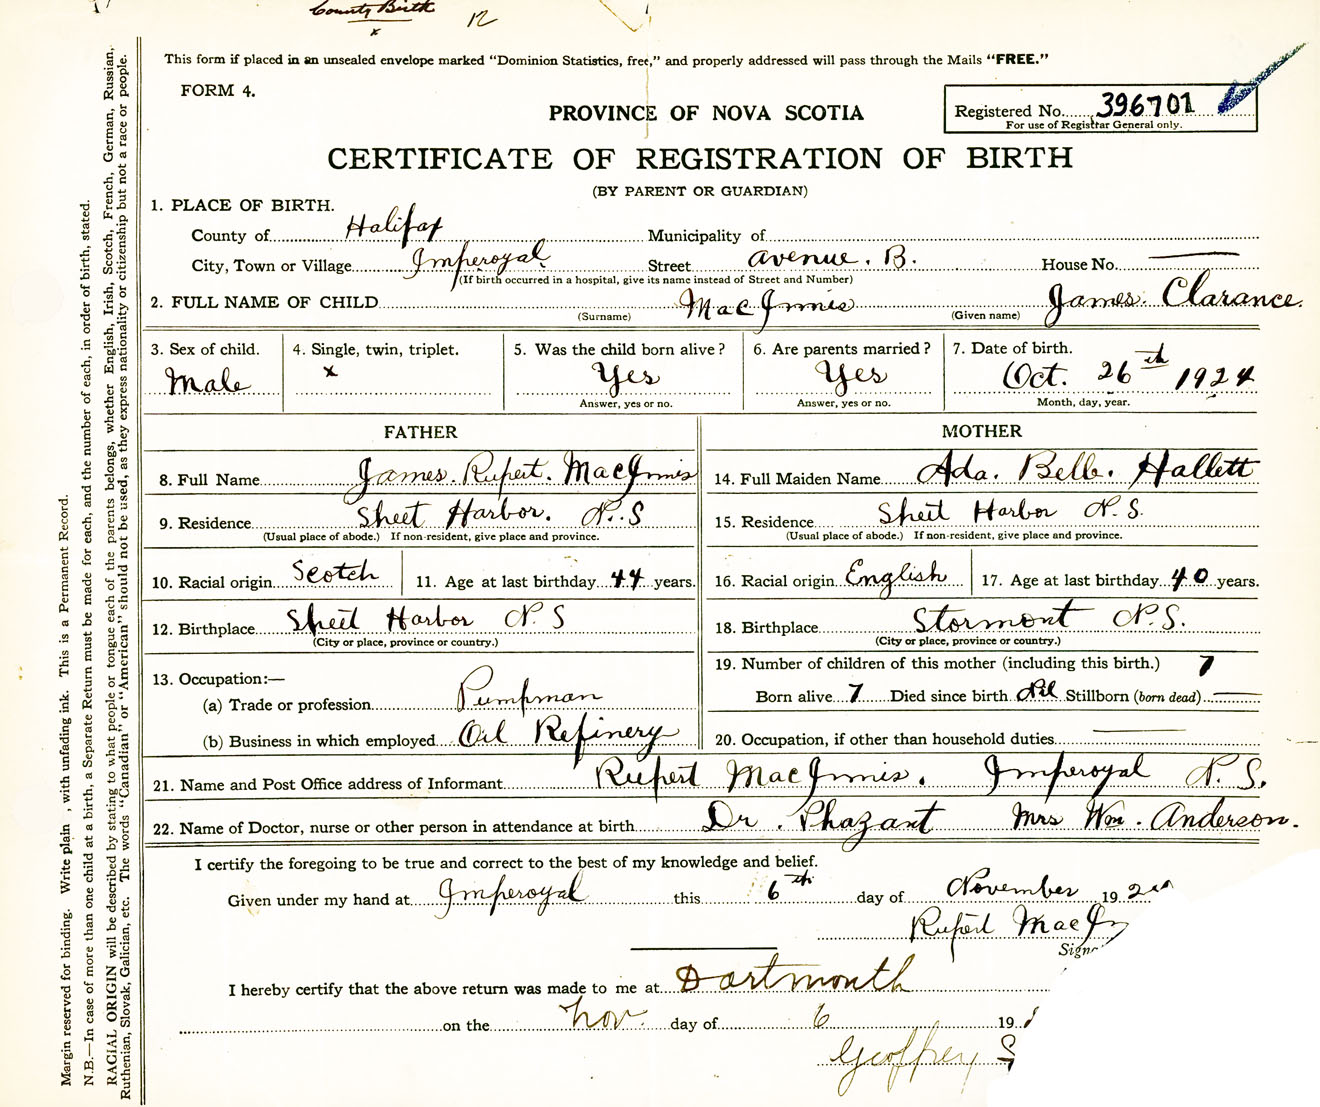 County Birth 12
x
This form if placed in an unsealed envelope marked "Dominion Statistics, free," and properly addressed will pass through the Mails "FREE."
FORM 4.
PROVINCE OF NOVA SCOTIA
Registered No. 396701
For use of Registrar General only.
CERTIFICATE OF REGISTRATION OF BIRTH
(BY PARENT OR GUARDIAN)
1. PLACE OF BIRTH.
County of Halifax Municipality of
City, Town or Village Imperoyal Street Avenue. B. House No. —
(If birth occurred in a hospital, give its name instead of Street and Number)
2. FULL NAME OF CHILD MacInnis James. Clarance.
(Surname) (Given name)
3. Sex of child. 4. Single, twin, triplet. 5. Was the child born alive? 6. Are parents married? 7. Date of birth.
Male x Yes Yes Oct. 26th 1924
Answer, yes or no. Answer, yes or no. Month, day, year.
FATHER MOTHER
8. Full Name James. Rupert. MacInnis 14. Full Maiden Name Ada. Belle. Hallett
9. Residence Sheet Harbor. N.S 15. Residence Sheet Harbor N.S.
(Usual place of abode.) If non-resident, give place and province. (Usual place of abode.) If non-resident, give place and province.
10. Racial origin Scotch 11. Age at last birthday 44 years. 16. Racial origin English 17. Age at last birthday 40 years.
12. Birthplace Sheet Harbor N.S 18. Birthplace Stormont N.S.
(City or place, province or country.) (City or place, province or country.)
13. Occupation:— 19. Number of children of this mother (including this birth.) 7
(a) Trade or profession Pumpman Born alive 7 Died since birth Nil Stillborn (born dead) —
(b) Business in which employed Oil Refinery 20. Occupation, if other than household duties —
21. Name and Post Office address of Informant Rupert MacInnis. Imperoyal N.S.
22. Name of Doctor, nurse or other person in attendance at birth Dr. Phazant Mrs Wm. Anderson.
I certify the foregoing to be true and correct to the best of my knowledge and belief.
Given under my hand at Imperoyal this 6th day of November 192
Rupert MacIn
Sign
I hereby certify that the above return was made to me at Dartmouth
on the Nov. day of 6 19
Geoffrey S
Margin reserved for binding. Write plain , with unfading ink. This is a Permanent Record.
N.B.—In case of more than one child at a birth, a Separate Return must be made for each, and the number of each, in order of birth, stated.
RACIAL ORIGIN will be described by stating to what people or tongue each of the parents belongs, whether English, Irish, Scotch, French, German, Russian,
Ruthenian, Slovak, Galician, etc. The words "Canadian" or "American" should not be used, as they express nationality or citizenship but not a race or people.